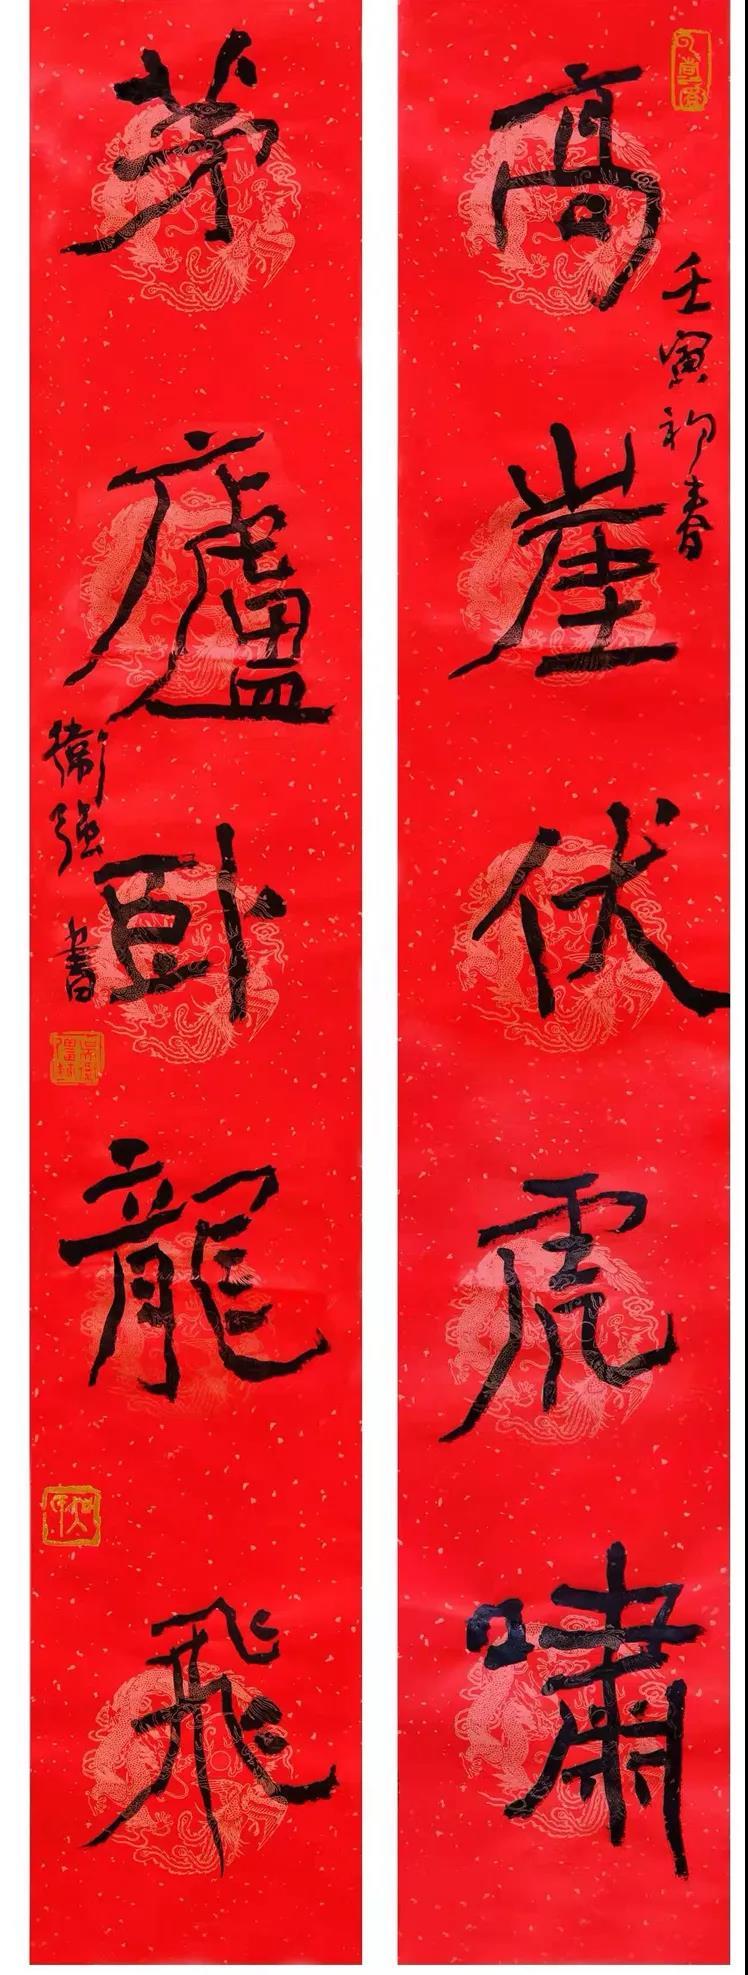 高崖伏虎嘯
壬寅初春
茅廬卧龍飛
衛強書